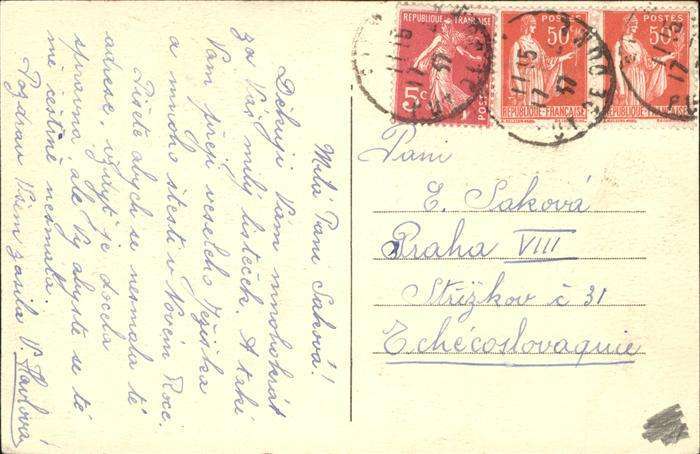 Milá Paní Saková!
Děkuji Vám mnohokrát
za Váš milý lísteček. A také
Vám přeji veselého Ježíška
a mnoho štěstí v Novém Roce.
Píšete abych se nesmála té
adrese, vždyť je docela
správná ale Vy abyste se té
mé češtině nesmála.
Pozdrav Všem zasílá V. Havlová
REPUBLIQUE FRANÇAISE
5c
POSTES
POSTES
50c
REPUBLIQUE FRANÇAISE
POSTES
50c
REPUBLIQUE FRANÇAISE
Paní
E. Saková
Praha VIII
Střížkov č 31
Tchécoslovaquie